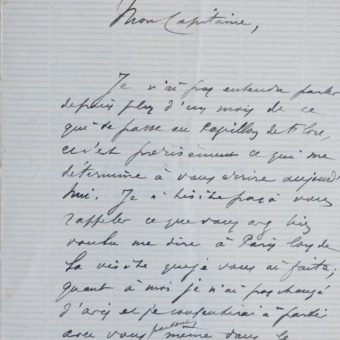 Mon Capitaine,
Je n'ai pas entendu parler
depuis plus d'un mois de ce
qui se passe au Pavillon de Flore,
et c'est précisément ce qui me
détermine à vous écrire aujourd'
hui. Je n'hésite pas à vous
rappeler ce que vous avez bien
voulu me dire à Paris lors de
la visite que je vous ai faite;
quant à moi je n'ai pas changé
d'avis et je consentirai à partir
avec vous même dans le